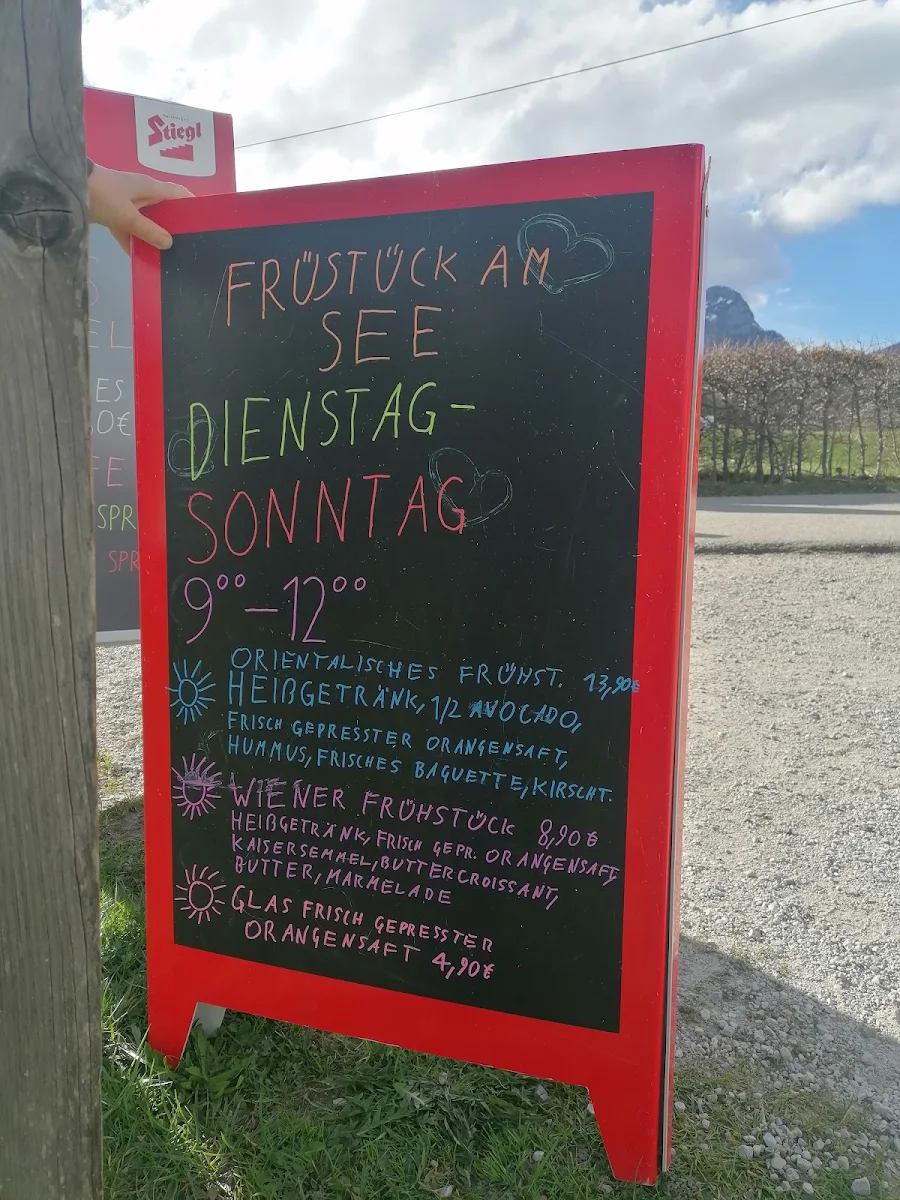 Stiegl
FRÜSTÜCK AM
SEE
DIENSTAG-
SONNTAG
9⁰⁰-12⁰⁰
ORIENTALISCHES FRÜHST. 13,90€
HEIßGETRÄNK, 1/2 AVOCADO,
FRISCH GEPRESSTER ORANGENSAFT,
HUMMUS, FRISCHES BAGUETTE, KIRSCHT.
WIENER FRÜHSTÜCK 8,90€
HEIßGETRÄNK, FRISCH GEPR. ORANGENSAFT,
KAISERSEMMEL, BUTTERCROISSANT,
BUTTER, MARMELADE
GLAS FRISCH GEPRESSTER
ORANGENSAFT 4,90€
EL
ES
0€
FE
SPR
SPR